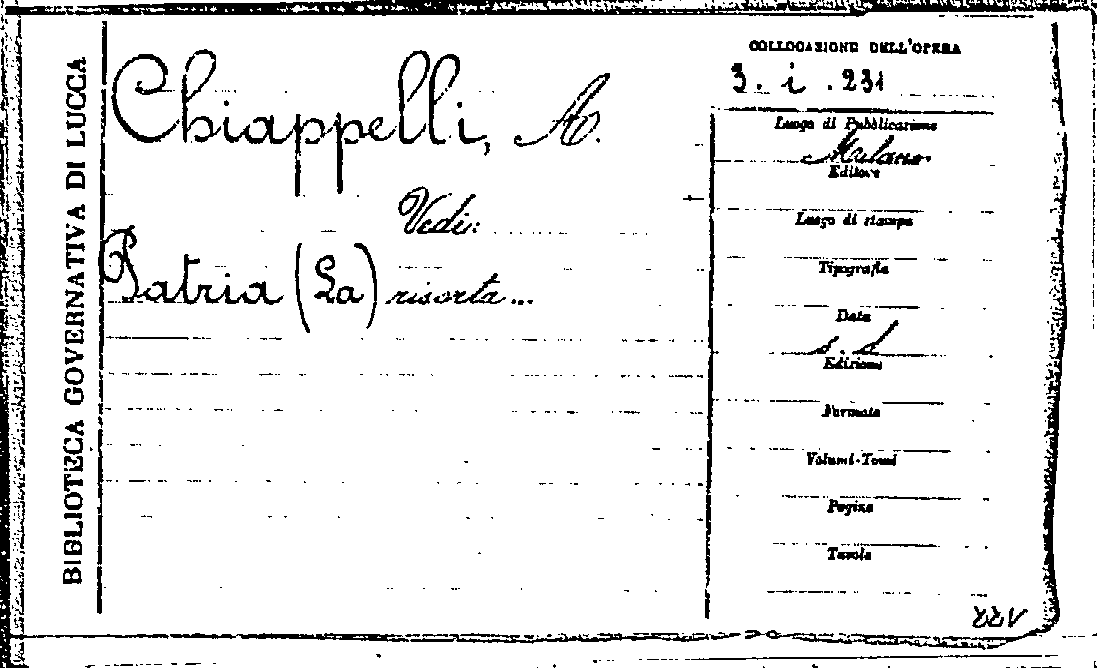 BIBLIOTECA GOVERNATIVA DI LUCCA
Chiappelli, A.
Vedi:
Patria (La) risorta...
COLLOCAZIONE DELL'OPERA
3. i. 231
Luogo di Pubblicazione
Milano
Editore
Luogo di stampa
Tipografia
Data
s. d
Edizione
Formato
Volumi-Tomi
Pagine
Tavole